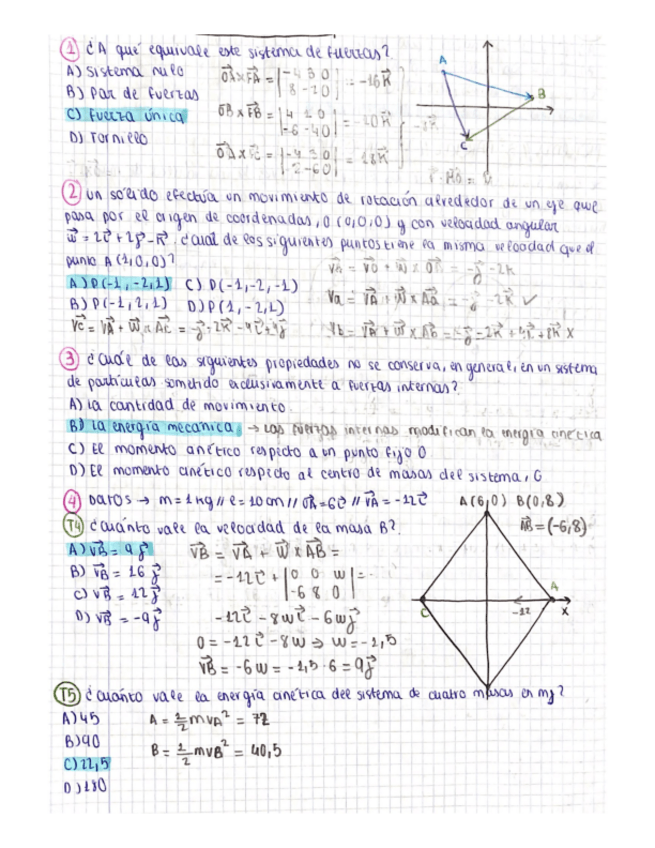 1 ¿A qué equivale este sistema de fuerzas?
A) Sistema nulo
B) Par de fuerzas
C) Fuerza única
D) Tornillo
OA x FA = |-4 3 0| |8 -2 0| = -16K
OB x FB = |4 1 0| |-6 -4 0| = -10K
= 18K
A
B
C
2 Un sólido efectúa un movimiento de rotación alrededor de un eje que
pasa por el origen de coordenadas, O (0,0,0) y con velocidad angular
w = 2i + 2j - k. ¿Cual de los siguientes puntos tiene la misma velocidad que el
punto A (1,0,0)?
A) P(-1,-2,1) C) P(-1,-2,-1)
B) P(-1,2,1) D) P(1,-2,1)
Va = VA + W x Aa = -j - 2K ✓
Vc = VA + W x Ac = -j - 2K - 4i + 4j
Vb = VA + W x Ab = -j - 2K + 4i + 8K X
3 ¿Cuál de las siguientes propiedades no se conserva, en general, en un sistema
de partículas sometido exclusivamente a fuerzas internas?
A) La cantidad de movimiento
B) La energía mecánica → Las fuerzas internas modifican la energía cinética
C) El momento cinético respecto a un punto fijo O
D) El momento cinético respecto al centro de masas del sistema, G
4 Datos → m = 1 kg // l = 10 cm // OA = 6i // VA = -12i
A(6,0) B(0,8)
AB = (-6,8)
T4 ¿Cuánto vale la velocidad de la masa B?
A) VB = 9j
B) VB = 16j
C) VB = 12j
D) VB = -9j
VB = VA + W x AB =
= -12i + |0 0 w| |-6 8 0| =
-12i - 8wi - 6wj
0 = -12i - 8w ⇒ w = -1,5
VB = -6w = -1,5 · 6 = 9j
C
A
-12
x
T5 ¿Cuánto vale la energía cinética del sistema de cuatro masas en mJ?
A) 45
B) 90
C) 22,5
D) 180
A = 1/2 m VA² = 72
B = 1/2 m VB² = 40,5